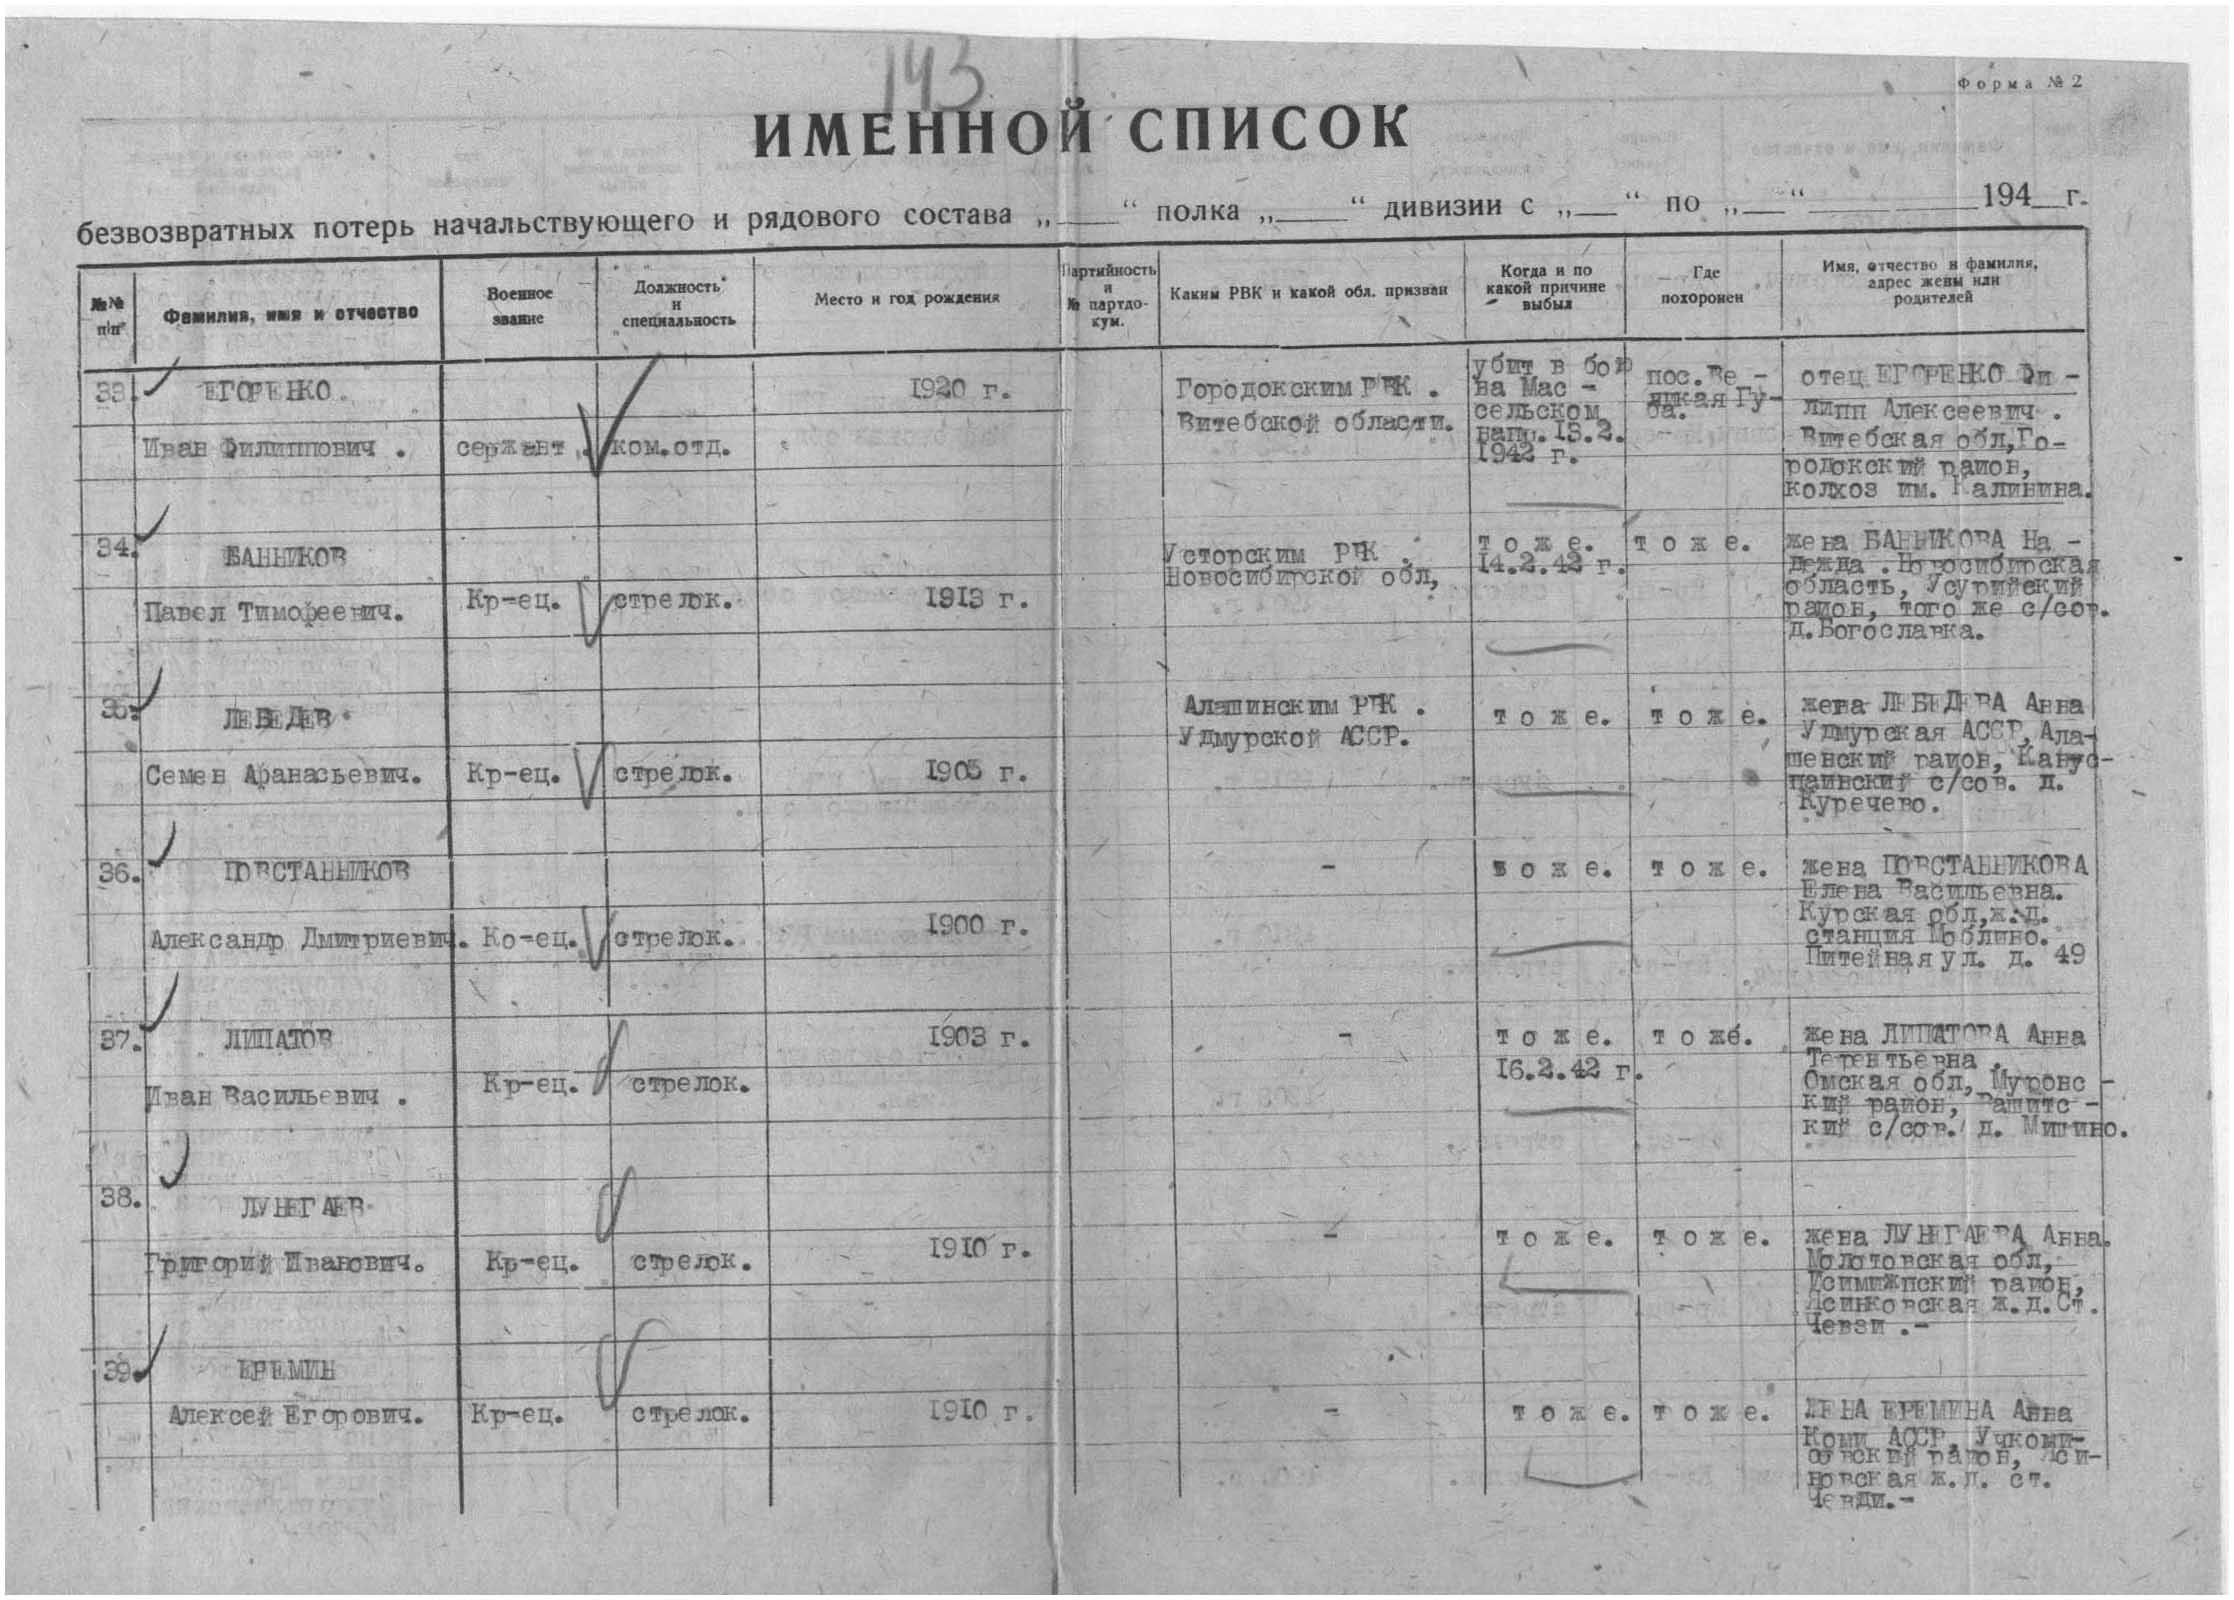 143
Форма № 2
ИМЕННОЙ СПИСОК
безвозвратных потерь начальствующего и рядового состава „____“ полка „____“ дивизии с „__“ по „__“ ________ 194__г.
№№ п/п
Фамилия, имя и отчество
Военное звание
Должность и специальность
Место и год рождения
Партийность и № партдокум.
Каким РВК и какой обл. призван
Когда и по какой причине выбыл
Где похоронен
Имя, отчество и фамилия, адрес жены или родителей
33.
ЕГОРЕНКО
Иван Филиппович .
сержант.
ком.отд.
1920 г.
Городокским РВК .
Витебской области.
убит в бою
на Мас -
сельском
напр. 13.2.
1942 г.
пос.Ве -
ликая Гу-
ба.
отец ЕГОРЕНКО Фи -
липп Алексеевич .
Витебская обл,Го-
родокский район,
колхоз им. Калинина.
34.
БАННИКОВ
Павел Тимофеевич.
Кр-ец.
стрелок.
1913 г.
Усторским РВК .
Новосибирской обл,
т о ж е.
14.2.42 г.
т о ж е.
жена БАННИКОВА На -
дежда . Новосибирская
область, Усурийский
район, того же с/сов.
д.Богославка.
35.
ЛЕБЕДЕВ
Семен Афанасьевич.
Кр-ец.
стрелок.
1905 г.
Алашинским РВК .
Удмурской АССР.
т о ж е.
т о ж е.
жена ЛЕБЕДЕВА Анна
Удмурская АССР, Ала-
шенский район,
с/сов. д.
Куречево.
36.
ПОВСТАННИКОВ
Александр Дмитриевич.
Ко-ец.
стрелок.
1900 г.
-
т о ж е.
т о ж е.
жена ПОВСТАННИКОВА
Елена Васильевна.
Курская обл,ж.д.
станция Моблино.
Питейная ул. д. 49
37.
ЛИПАТОВ
Иван Васильевич .
Кр-ец.
стрелок.
1903 г.
-
т о ж е.
16.2.42 г.
т о же.
жена ЛИПАТОВА Анна
Терентьевна .
Омская обл, Муромс -
кий район, Рашитс -
кий с/сов. д. Мишино.
38.
ЛУНЕГАЕВ
Григорий Иванович.
Кр-ец.
стрелок.
1910 г.
-
т о ж е.
т о ж е.
жена ЛУНЕГАЕВА Анна.
Молотовская обл,
район,
Ясинковская ж.д.Ст.
Чевзи .-
39.
ЕРЕМИН
Алексей Егорович.
Кр-ец.
стрелок.
1910 г.
-
т о ж е.
т о ж е.
ЖЕНА ЕРЕМИНА Анна
Коми АССР, Учкоми-
совский район, Яси-
новская ж.д. ст.
Чевди.-